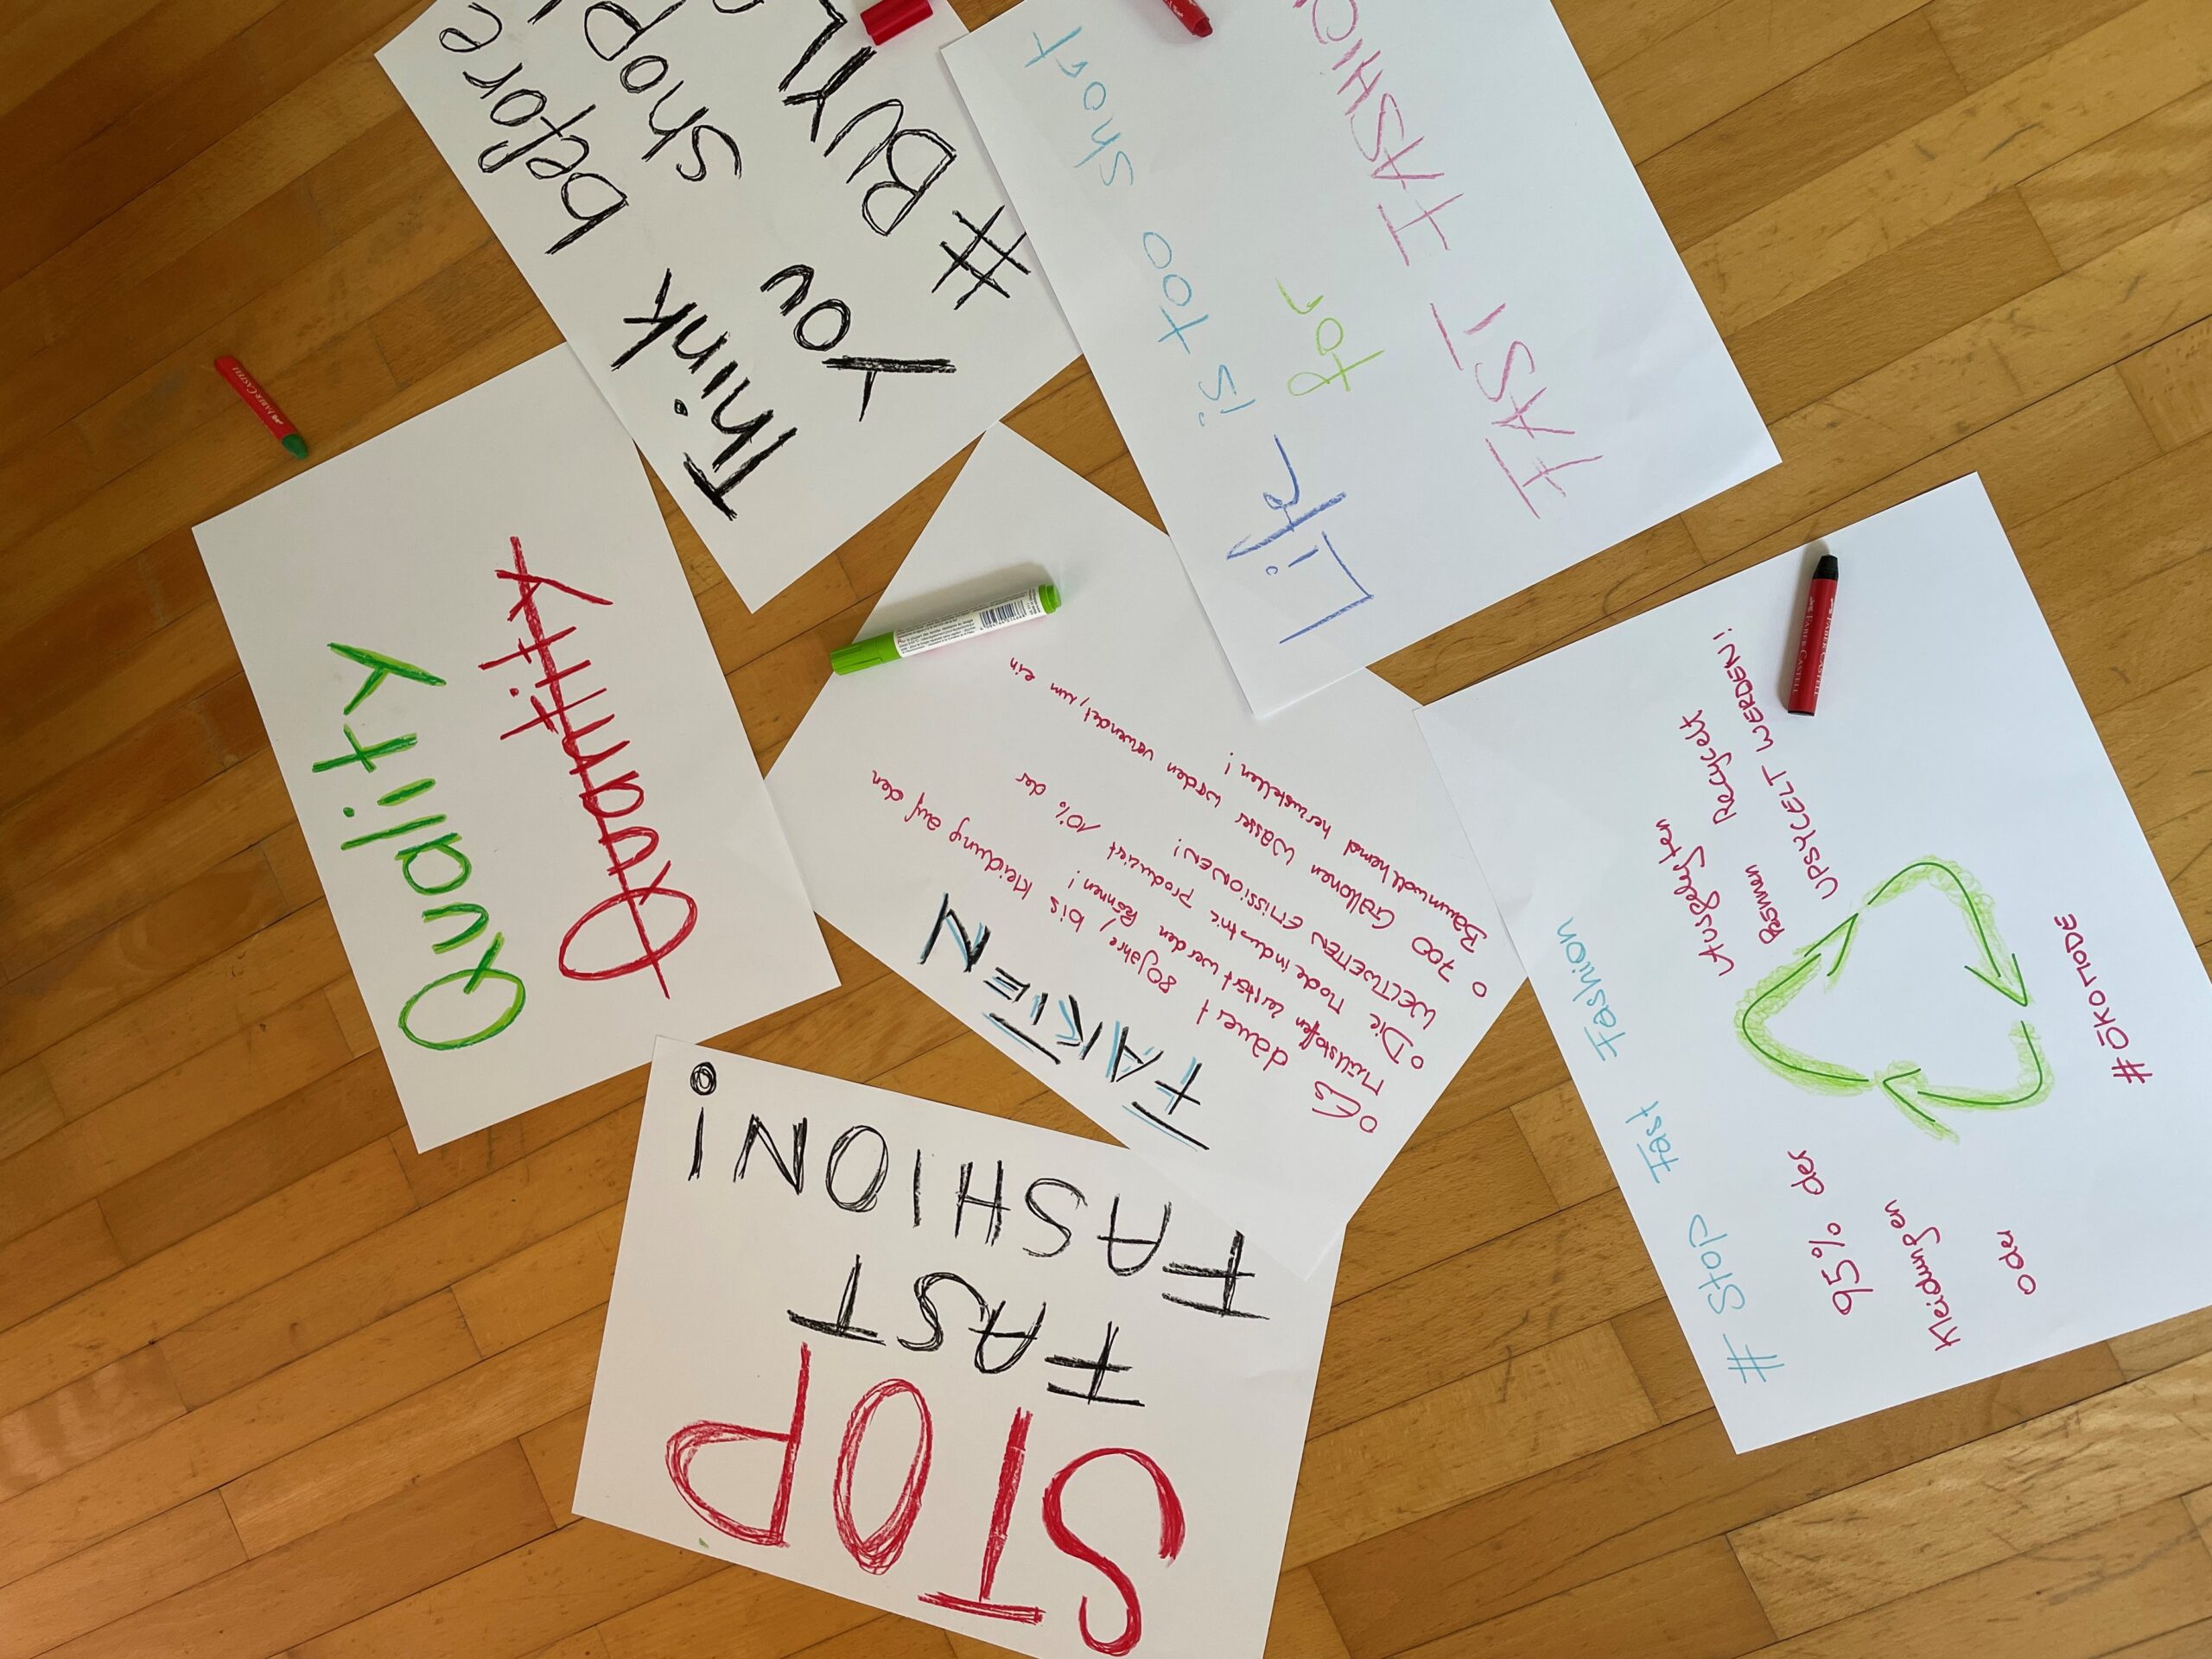 Think before
You shop
#BUY
Life is too short
for
FAST FASHIO
Quality
Quantity
FAKTEN
o Es dauert 80 Jahre, bis Kleidung auf den
Müllstoffen zerstört werden können!
o Die Mode industrie produziert 10% der
WELTWEITEN EMISSIONEN!
o 700 Gallonen Wasser werden verwendet, um ein
Baumwollhemd herzustellen!
# Stop Fast Fashion
95% der
Kleidungen Recaycelt
oder UPSYCELT WERDEN!
#ÖKOMODE
STOP
FAST
FASHION!
FABER-CASTELL
FABER-CASTELL